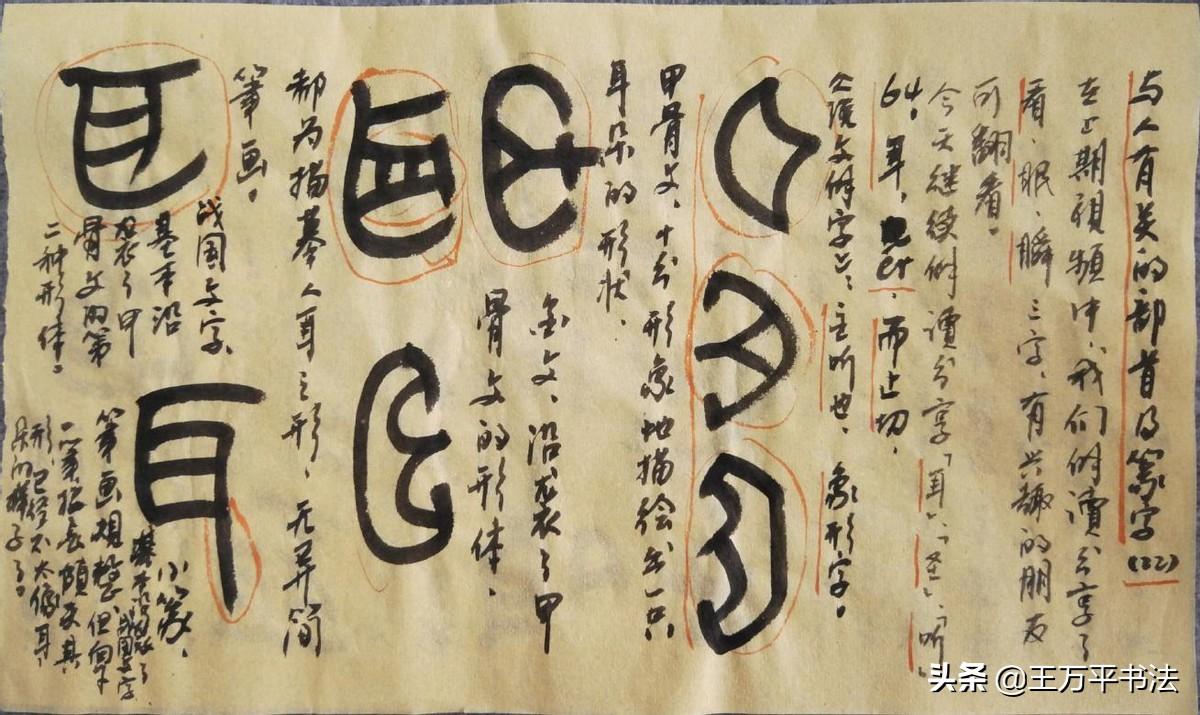 与人有关的部首及篆字(22)
在上期视频中，我们解读分享了
看、眠、瞬三字，有兴趣的朋友
可翻看。
今天继续解读分享「耳」、「圣」、「听」
64。耳，ěr，而止切，
《说文解字》：主听也，象形字。
甲骨文，十分形象地描绘出一只
耳朵的形状，
金文，沿袭了甲
骨文的形体，
都为描摹人耳之形，无弄简
笔画。
战国文字，
基本沿
袭了甲
骨文的第
二种形体。
小篆，
基本沿袭了
战国文字
笔画规整，但向下
一笔拉长颇失其
形，已经不太像耳
朵的样子了。
头条 @王万平书法